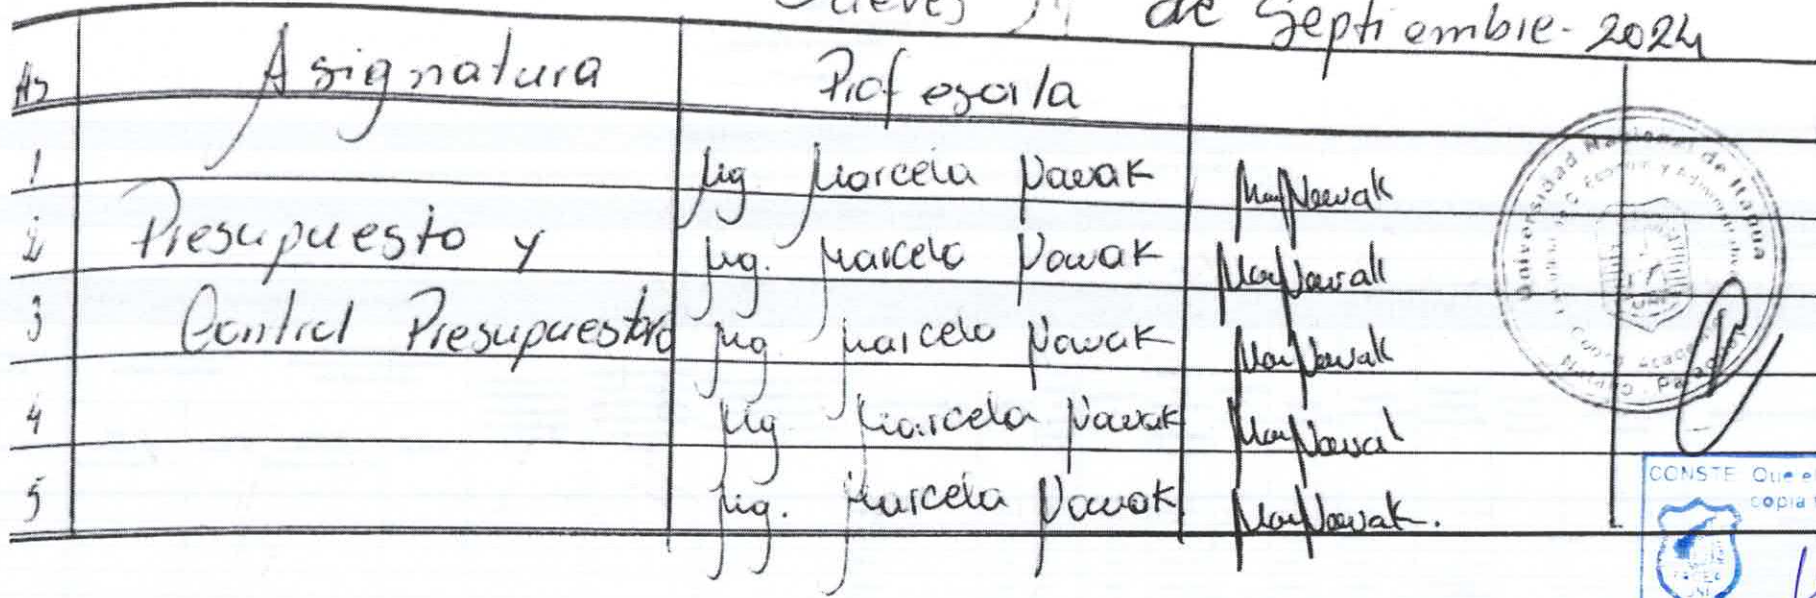 Jueves de Septiembre-2024
Hs Asignatura Profesor/a
1 Mg. Marcela Nowak MarNowak
2 Presupuesto y Mg. Marcela Nowak MarNowak
3 Control Presupuestario Mg. Marcela Nowak MarNowak
4 Mg. Marcela Nowak MarNowak
5 Mg. Marcela Nowak MarNowak.
Universidad Nacional de Itapua
CONSTE Que e
copia